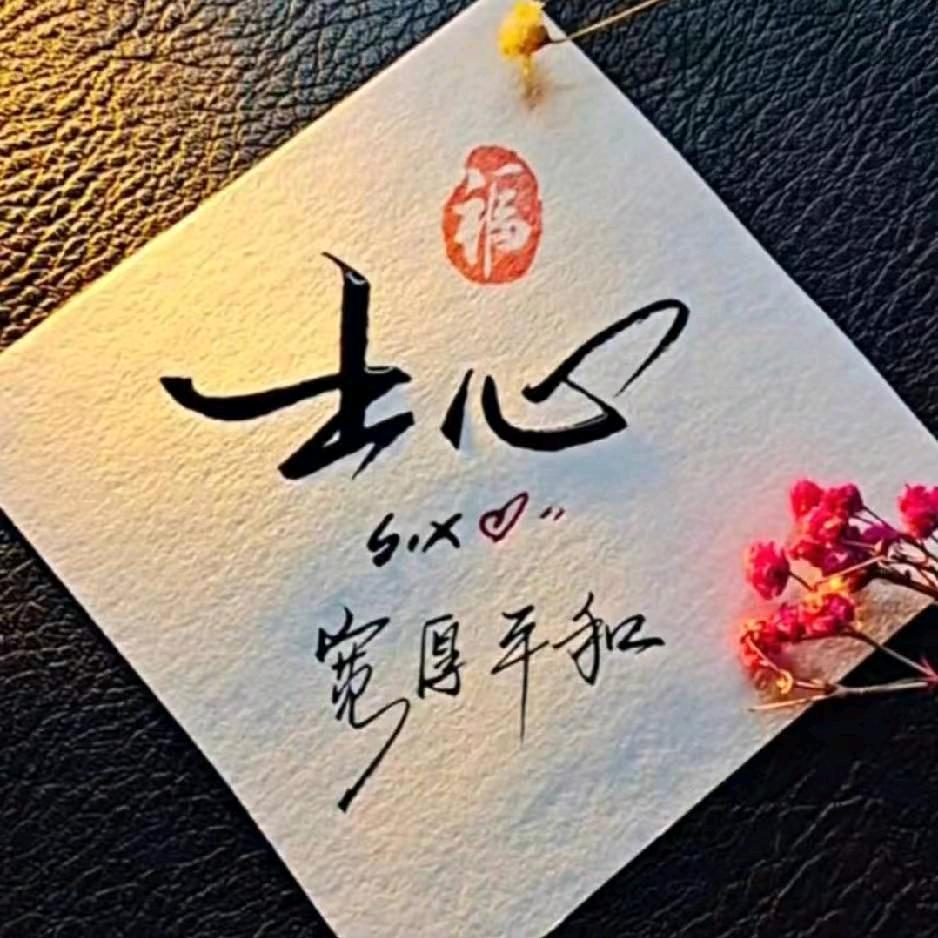 福
士心
six
宽厚平和